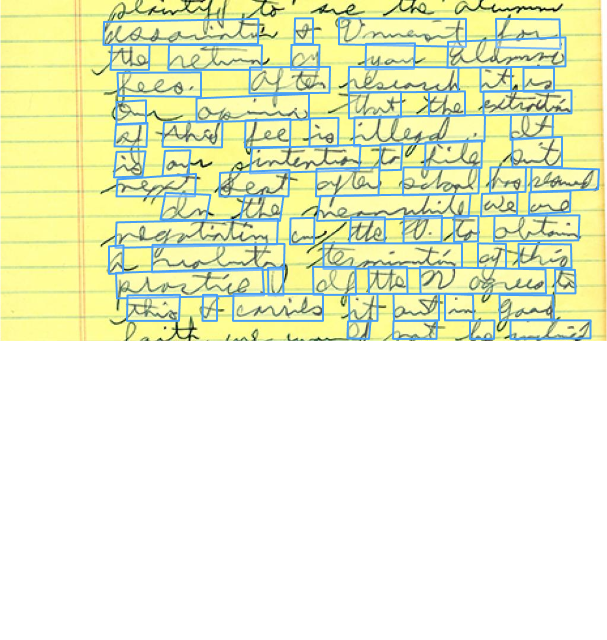 plaintiff to sue the alumni
association & University for
the return of your alumni
fees. After research it is
our opinion that the extraction
of this fee is illegal. It
is our intention to file suit
next Sept after school has resumed
In the meanwhile we are
negotiating w/ the U. to obtain
a voluntary termination of this
practice. If the U agrees to
this & carries it out in good
faith, we would not be inclined